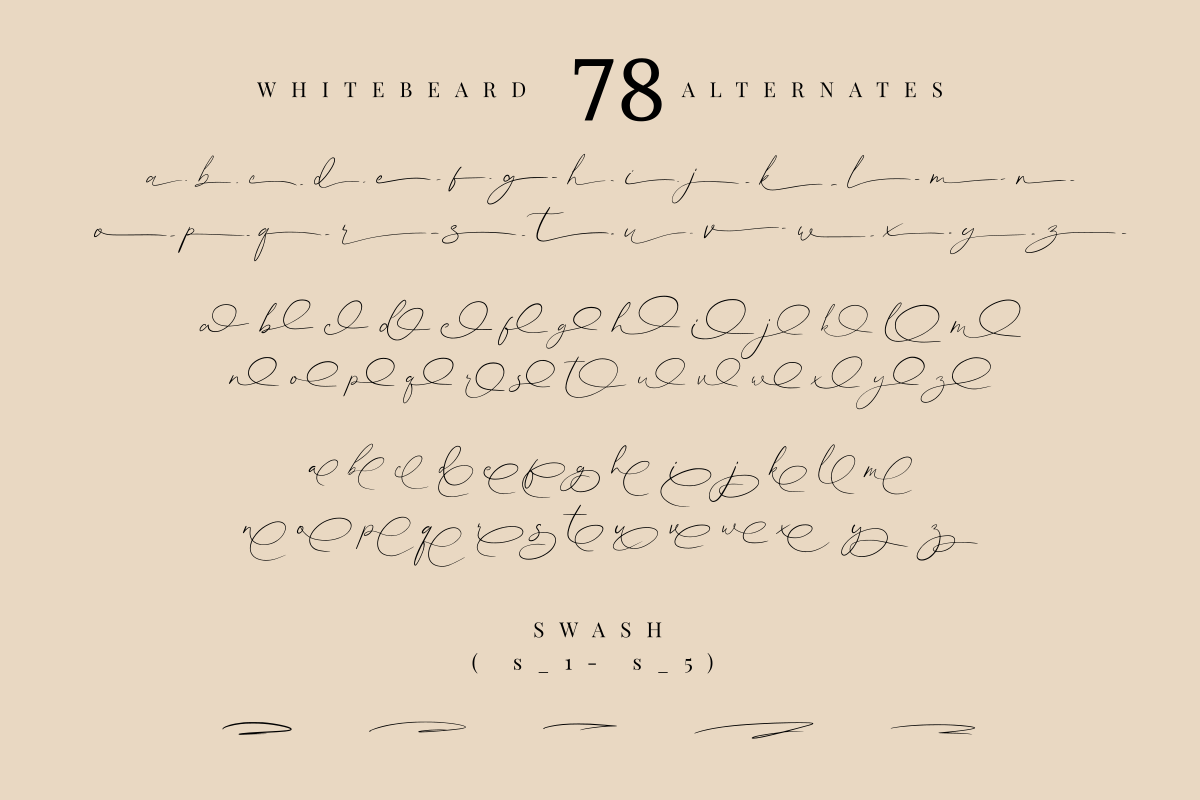 WHITEBEARD 78 ALTERNATES
a b c d e f g h i j k l m n
o p q r s t u v w x y z
a b c d e f g h i j k l m
n o p q r s t u v w x y z
a b c d e f g h i j k l m
n o p q r s t u v w x y z
SWASH
( s_1- s_5)